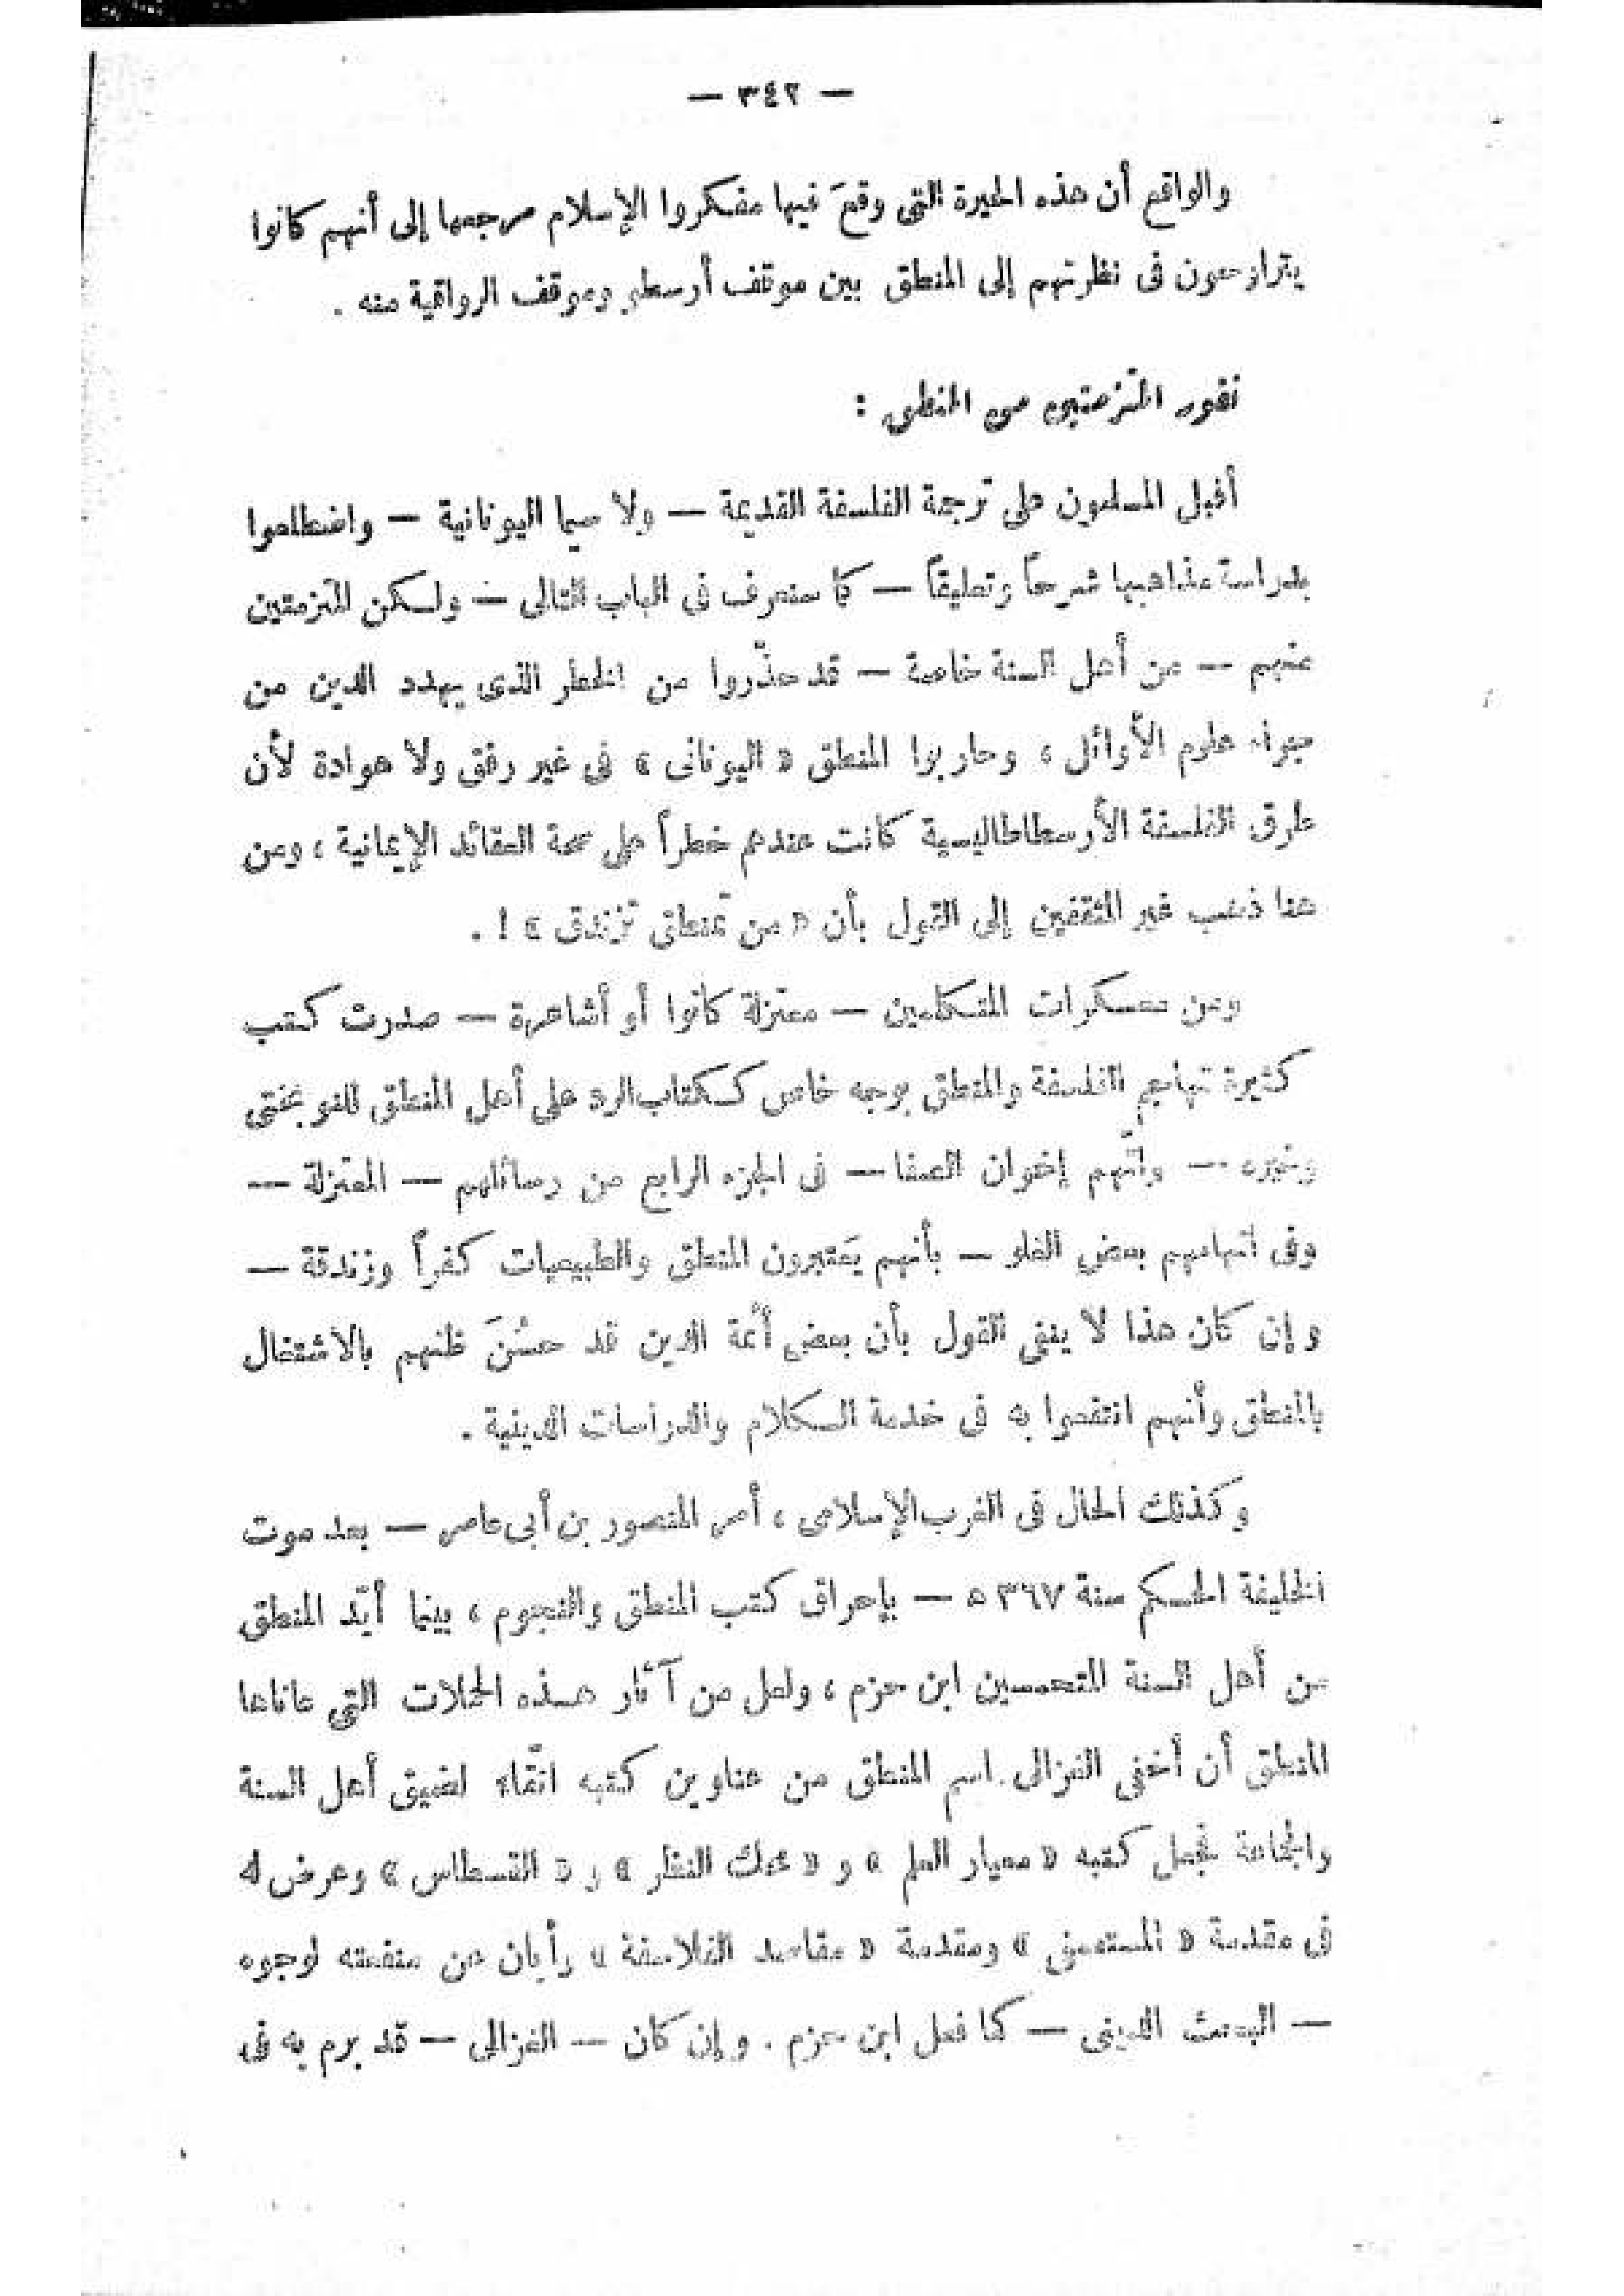 — ٣٤٢ —
والواقع أن هذه الحيرة التى وقعَ فيها مفكروا الإسلام مرجعها إلى أنهم كانوا
يتراوحون فى نظرتهم إلى المنطق بين موقف أرسطو وموقف الرواقية منه .
نفور المتزمتين من المنطق :
أقبل المسلمون على ترجمة الفلسفة القديمة — ولا سيما اليونانية — واضطلعوا
بدراسة مذاهبها شرحاً وتعليقاً — كما سنعرف فى الباب التالى — ولكن المتزمتين
منهم — من أهل السنة خاصة — قد حذّروا من الخطر الذى يهدد الدين من
علوم الأوائل ، وحاربوا المنطق « اليونانى » فى غير رفق ولا هوادة لأن
طرق الفلسفة الأرسطاطاليسية كانت عندهم خطراً على صحة العقائد الإيمانية ، ومن
هنا ذهب غير المثقفين إلى القول بأن « من تمنطق تزندق » ! .
ومن معسكرات المتكلمين — معتزلة كانوا أو أشاعرة — صدرت كتب
كثيرة تهاجم الفلسفة والمنطق بوجه خاص ككتاب الرد على أهل المنطق للنوبختى
وغيره — واتّهم إخوان الصفا — فى الجزء الرابع من رسائلهم — المعتزلة —
وفى اتهامهم بعض الغلو — بأنهم يعتبرون المنطق والطبيعيات كفراً وزندقة —
وإن كان هذا لا ينفى القول بأن بعض أئمة الدين قد حسُنَ ظنهم بالاشتغال
بالمنطق وأنهم انتفعوا به فى خدمة الكلام والدراسات الدينية .
وكذلك الحال فى الغرب الإسلامى ، أمر المنصور بن أبى عامر — بعد موت
الخليفة الحكم سنة ٣٦٧ ه — بإحراق كتب المنطق والنجوم ، بينما أيّد المنطق
من أهل السنة المتحمسين ابن حزم ، ولعل من آثار هذه الحملات التى عاناها
المنطق أن أخفى الغزالى اسم المنطق من عناوين كتبه اتقّاء لضيق أهل السنة
والجماعة فجعل كتبه « معيار العلم » و « محك النظر » و « القسطاس » وعرض له
فى مقدمة « المستصفى » ومقدمة « مقاصد الفلاسفة » وأبان عن منفعته لوجوه
— البحث الدينى — كما فعل ابن حزم . وإن كان — الغزالى — قد برم به فى